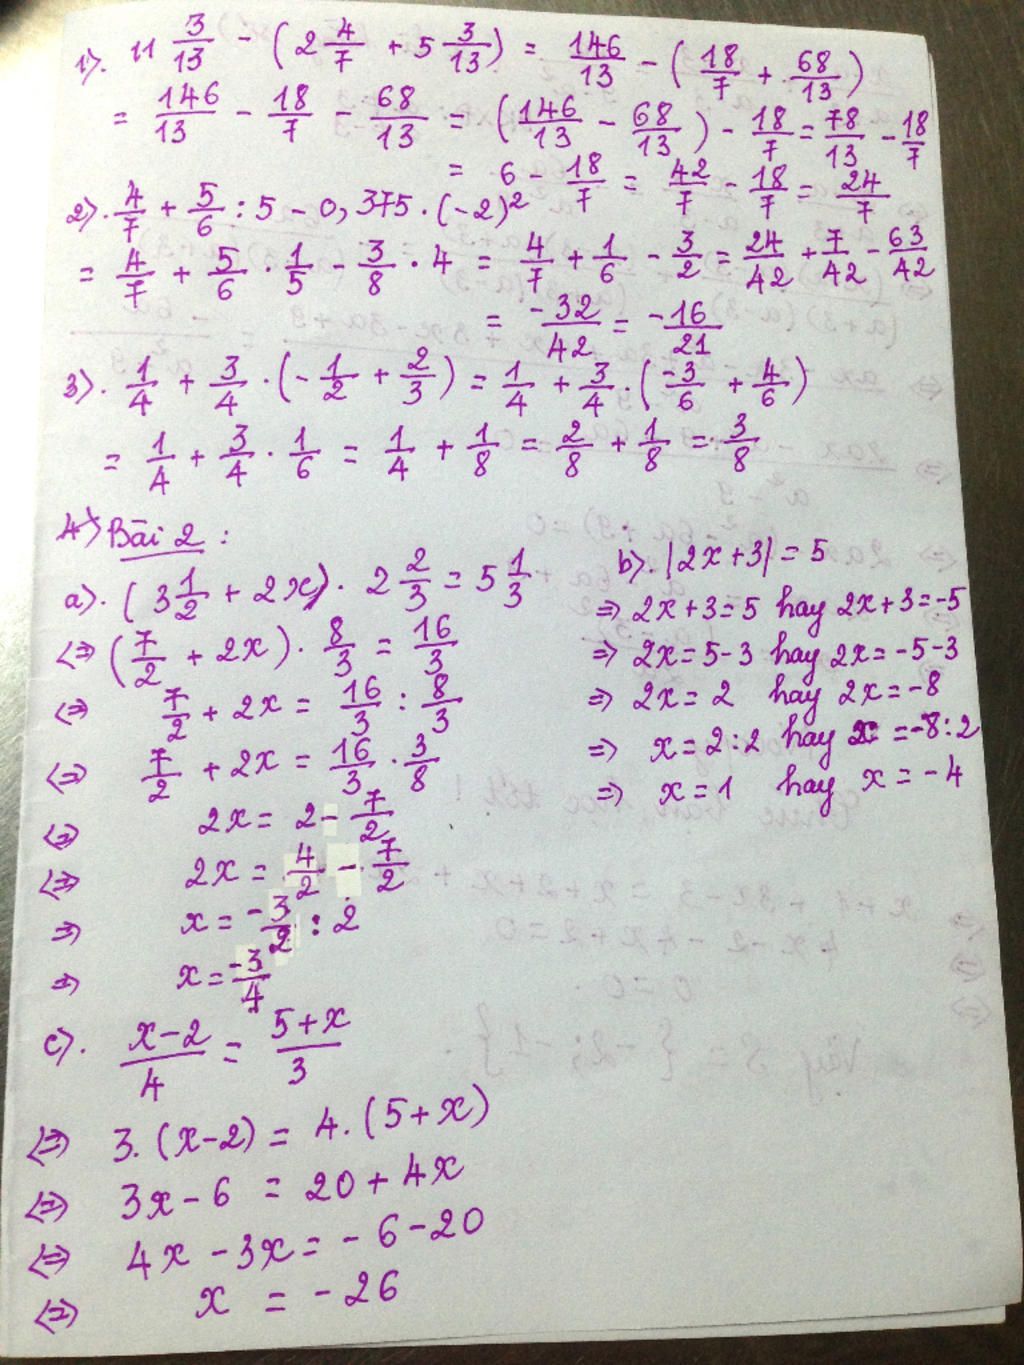 1). 11 3/13 - (2 4/7 + 5 3/13) = 146/13 - (18/7 + 68/13)
= 146/13 - 18/7 - 68/13 = (146/13 - 68/13) - 18/7 = 78/13 - 18/7
= 6 - 18/7 = 42/7 - 18/7 = 24/7
2). 4/7 + 5/6 : 5 - 0,375 . (-2)²
= 4/7 + 5/6 . 1/5 - 3/8 . 4 = 4/7 + 1/6 - 3/2 = 24/42 + 7/42 - 63/42
= -32/42 = -16/21
3). 1/4 + 3/4 . (-1/2 + 2/3) = 1/4 + 3/4 . (-3/6 + 4/6)
= 1/4 + 3/4 . 1/6 = 1/4 + 1/8 = 2/8 + 1/8 = 3/8
4) Bài 2 :
a). (3 1/2 + 2x) . 2 2/3 = 5 1/3
⇔ (7/2 + 2x) . 8/3 = 16/3
⇔ 7/2 + 2x = 16/3 : 8/3
⇔ 7/2 + 2x = 16/3 . 3/8
⇔ 2x = 2 - 7/2
⇔ 2x = 4/2 - 7/2
⇒ x = -3/2 : 2
⇒ x = -3/4
b). |2x+3| = 5
⇒ 2x+3=5 hay 2x+3=-5
⇒ 2x=5-3 hay 2x=-5-3
⇒ 2x=2 hay 2x=-8
⇒ x=2:2 hay x=-8:2
⇒ x=1 hay x=-4
c). x-2/4 = 5+x/3
⇔ 3.(x-2) = 4.(5+x)
⇔ 3x-6 = 20+4x
⇔ 4x-3x=-6-20
⇔ x = -26